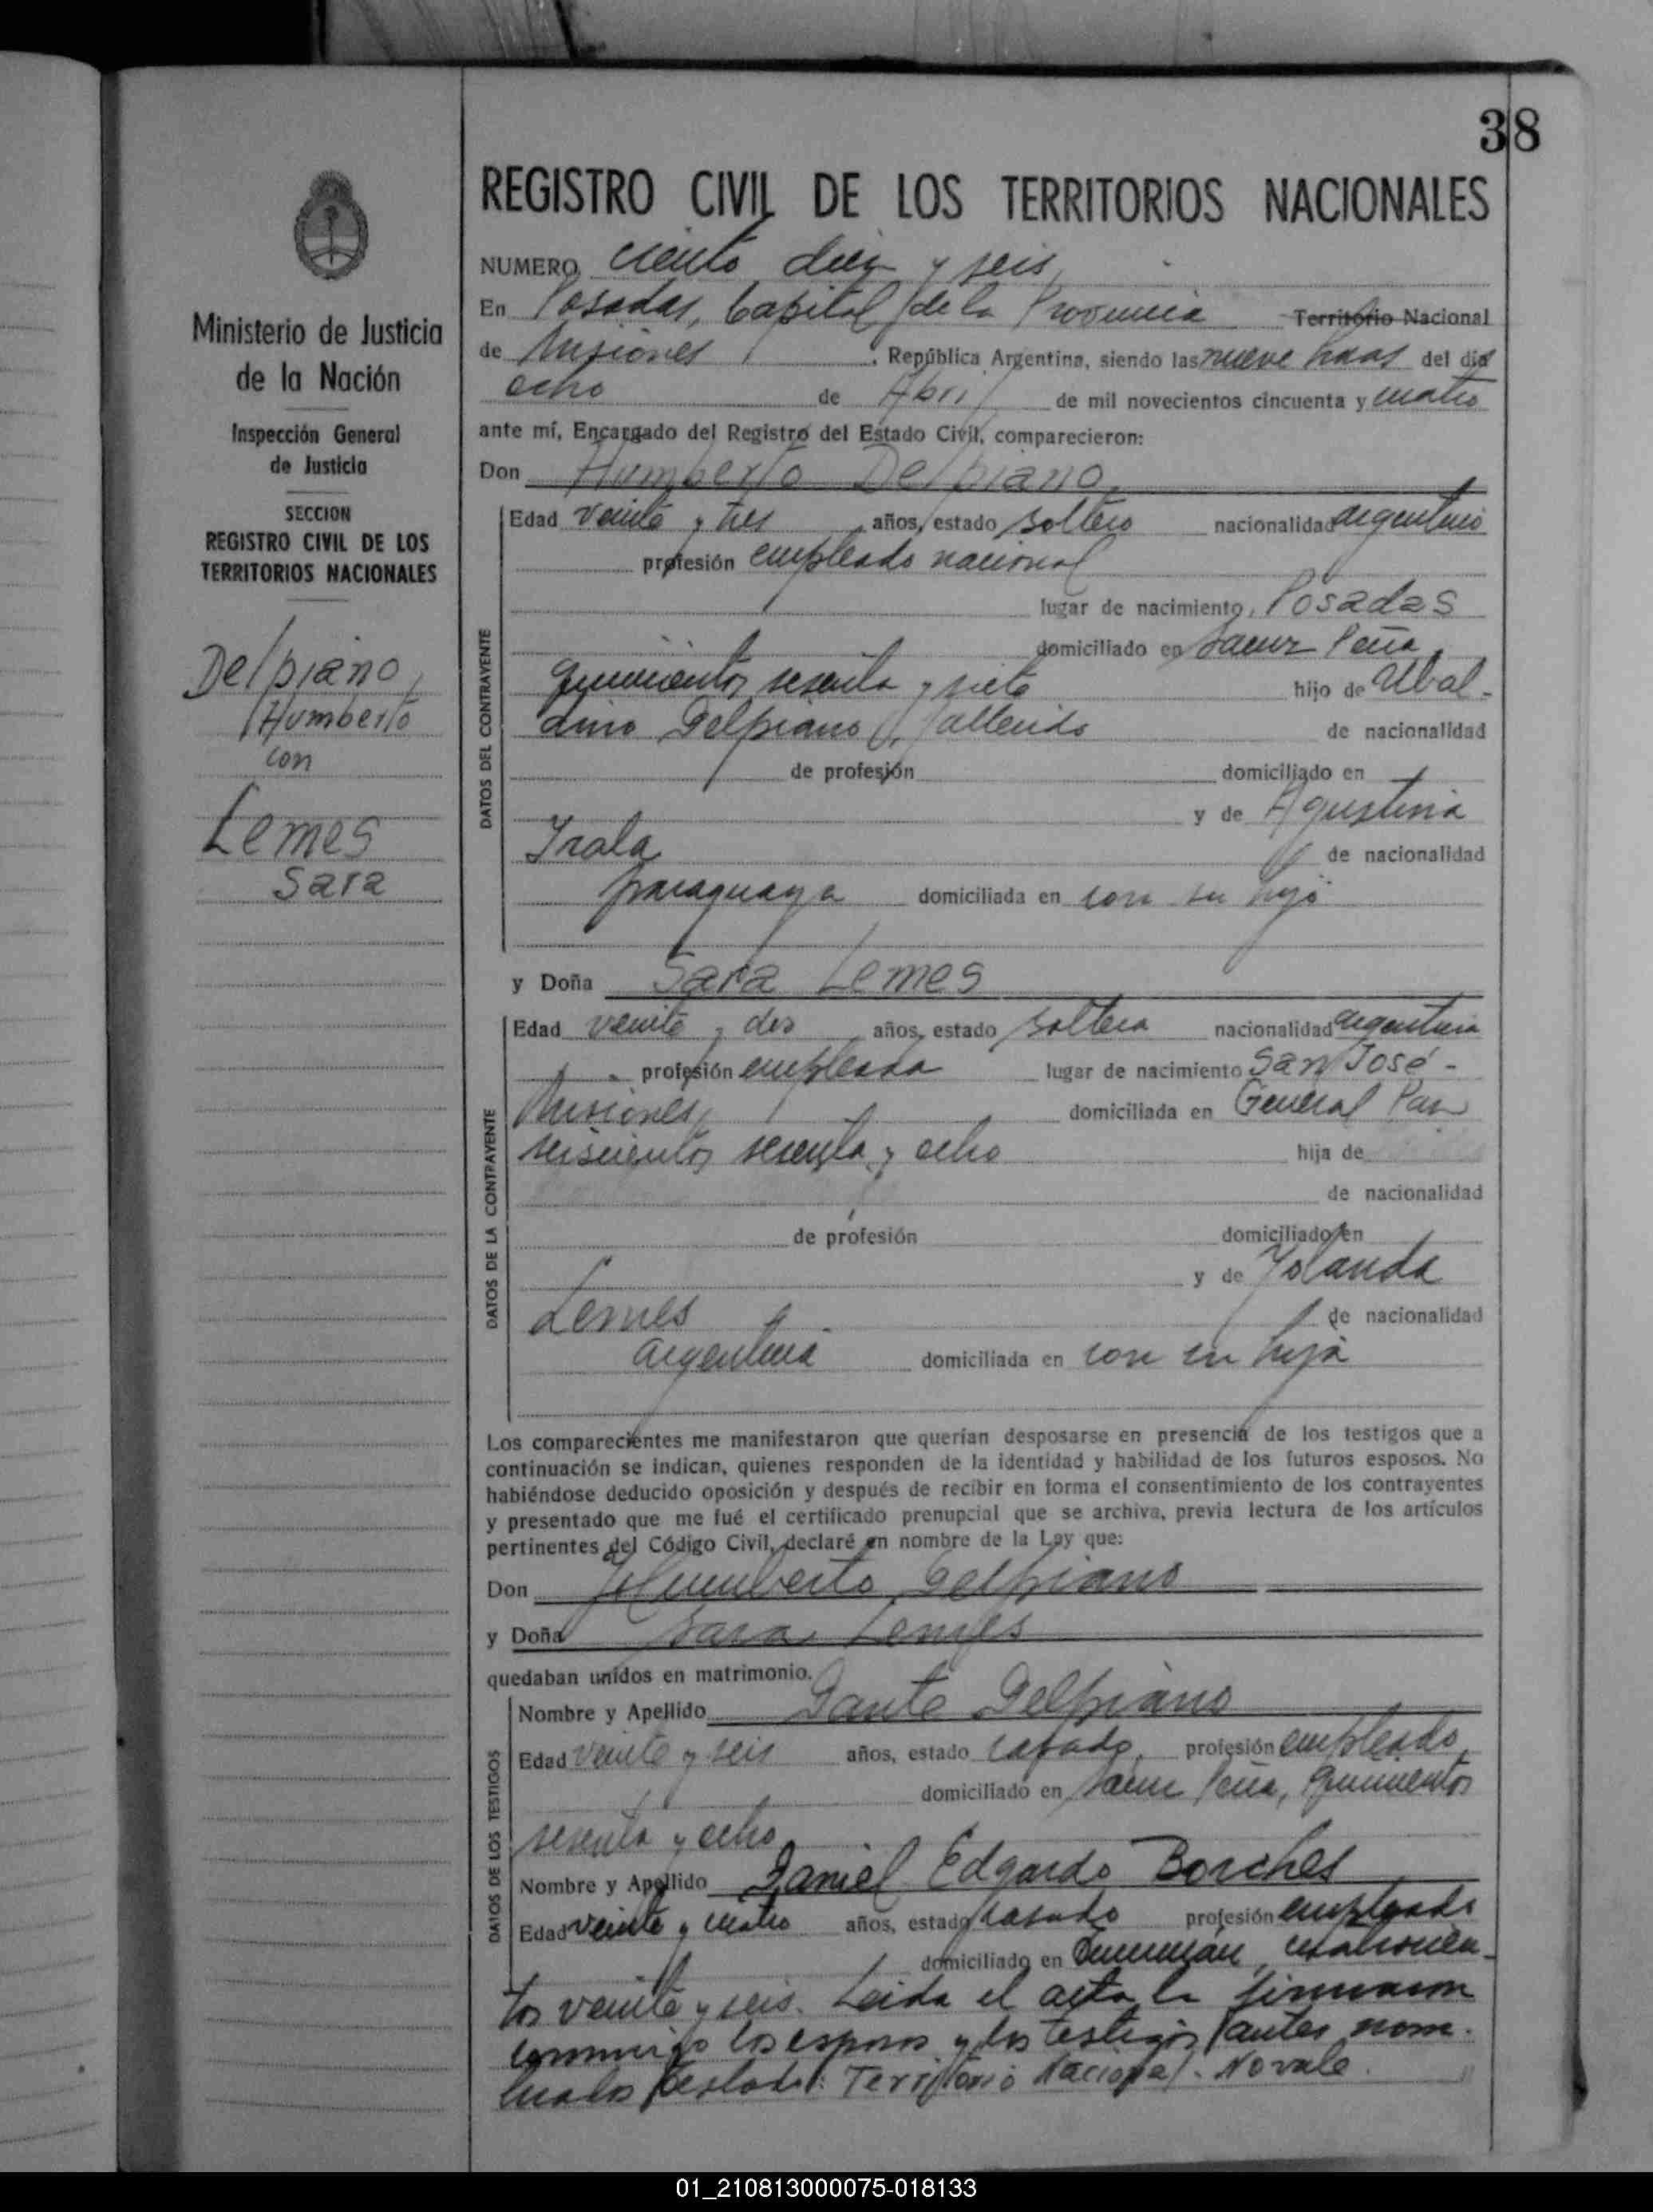 38
REGISTRO CIVIL DE LOS TERRITORIOS NACIONALES
NUMERO ciento diez y seis
En Posadas, Capital de la Provincia Territorio Nacional
de Misiones, República Argentina, siendo las nueve horas del día
ocho de Abril de mil novecientos cincuenta y cuatro
ante mí, Encargado del Registro del Estado Civil, comparecieron:
Don Humberto Delpiano
Edad veinte y tres años, estado soltero nacionalidad argentino
profesión empleado nacional
lugar de nacimiento Posadas
domiciliado en Saenz Peña
quinientos sesenta y siete hijo de Ubal-
dino Delpiano, fallecido de nacionalidad
de profesión domiciliado en
y de Agustina
Irala de nacionalidad
paraguaya domiciliada en con su hijo
DATOS DEL CONTRAYENTE
y Doña Sara Lemes
Edad veinte y dos años, estado soltera nacionalidad argentina
profesión empleada lugar de nacimiento San José -
Misiones, domiciliada en General Paz
seiscientos sesenta y ocho hija de
de nacionalidad
de profesión domiciliado en
y de Yolanda
Lemes de nacionalidad
argentina domiciliada en con su hija
DATOS DE LA CONTRAYENTE
Los comparecientes me manifestaron que querían desposarse en presencia de los testigos que a
continuación se indican, quienes responden de la identidad y habilidad de los futuros esposos. No
habiéndose deducido oposición y después de recibir en forma el consentimiento de los contrayentes
y presentado que me fué el certificado prenupcial que se archiva, previa lectura de los artículos
pertinentes del Código Civil, declaré en nombre de la Ley que:
Don Humberto Delpiano
y Doña Sara Lemes
quedaban unidos en matrimonio.
Nombre y Apellido Dante Delpiano
Edad veinte y seis años, estado casado, profesión empleado,
domiciliado en Saenz Peña, quinientos
sesenta y ocho
Nombre y Apellido Daniel Edgardo Borches
Edad veinte y cuatro años, estado casado profesión empleado
domiciliado en Tucumán, cuatrocien-
tos veinte y seis. Leida el acta la firmaron
conmigo los esposos y los testigos antes nom-
brados Testado: Territorio Nacional - No vale.
DATOS DE LOS TESTIGOS
Ministerio de Justicia
de la Nación
Inspección General
de Justicia
SECCION
REGISTRO CIVIL DE LOS
TERRITORIOS NACIONALES
Delpiano,
Humberto
con
Lemes
Sara
01_210813000075-018133